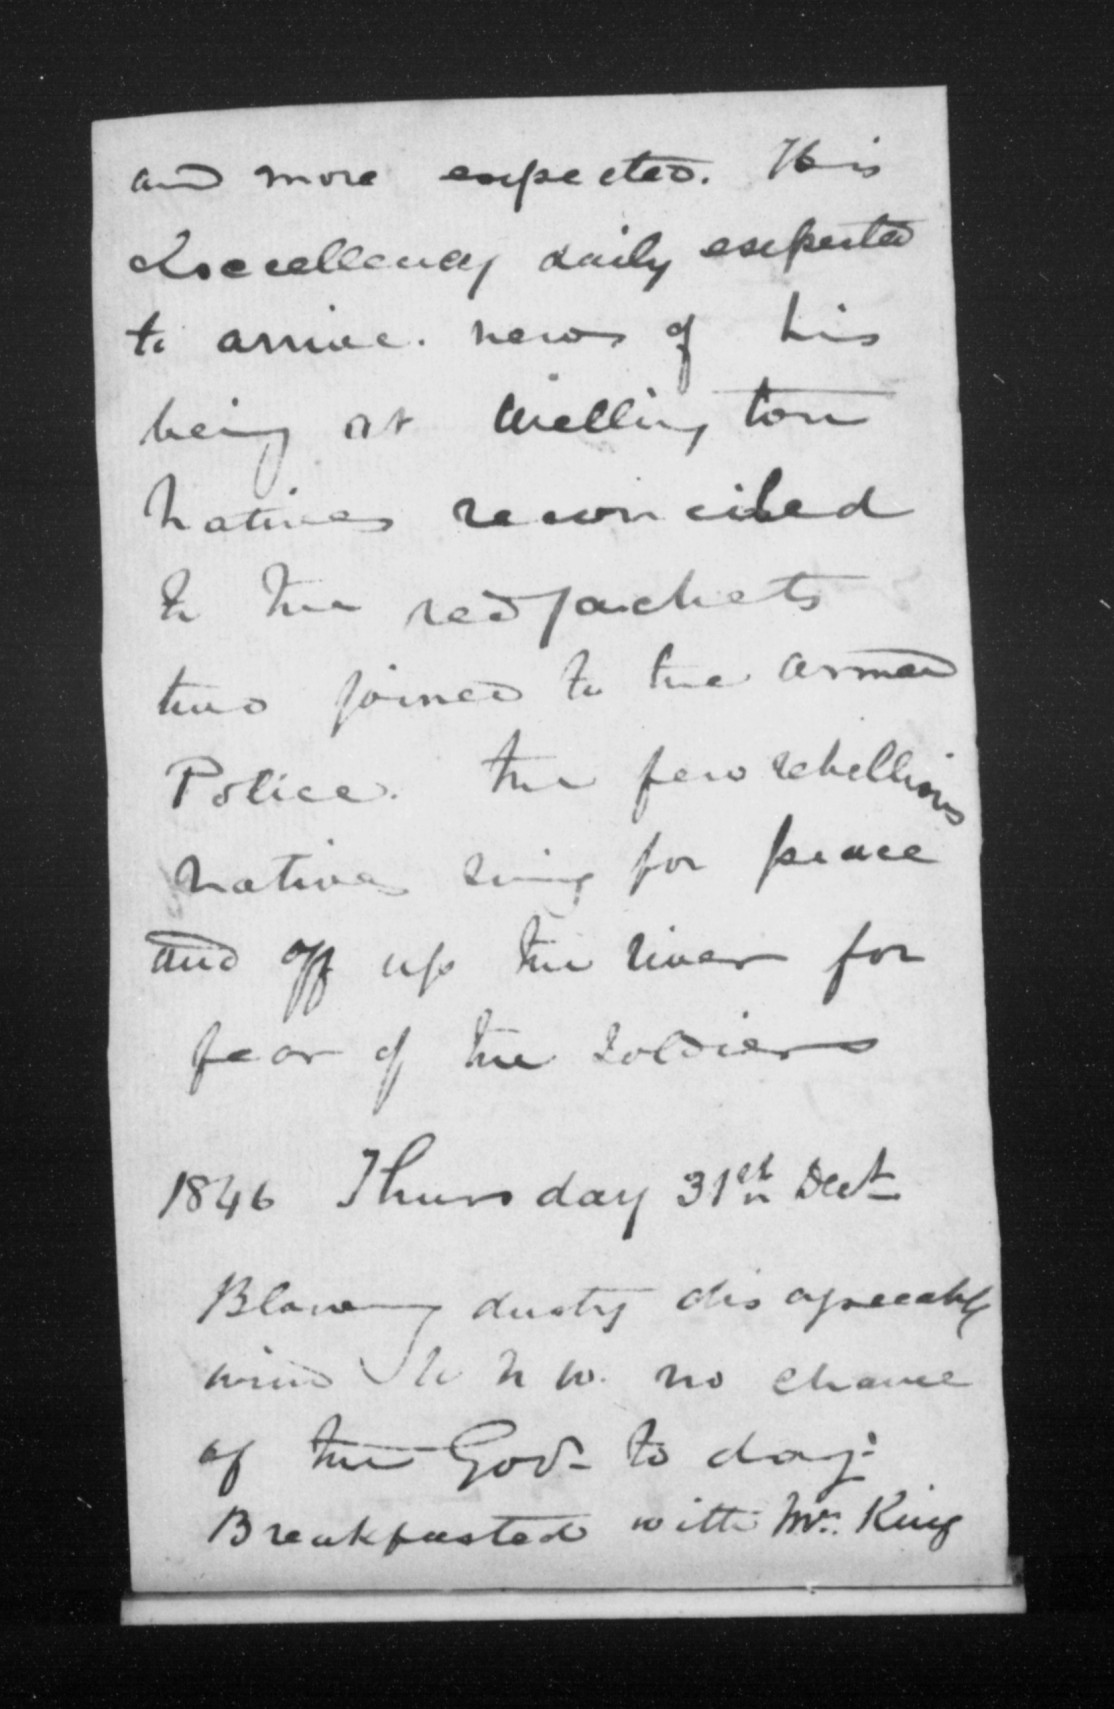 and more expected. His
Excellency daily expected
to arrive. news of his
being at Wellington
Natives reconciled
to the red jackets
two joined to the armed
Police. the few rebellious
natives suing for peace
and off up the river for
fear of the soldiers
1846 Thursday 31st Dec
Blowing dusty disagreeable
wind W N W. no chance
of the Gov- to day.
Breakfasted with Mr. King